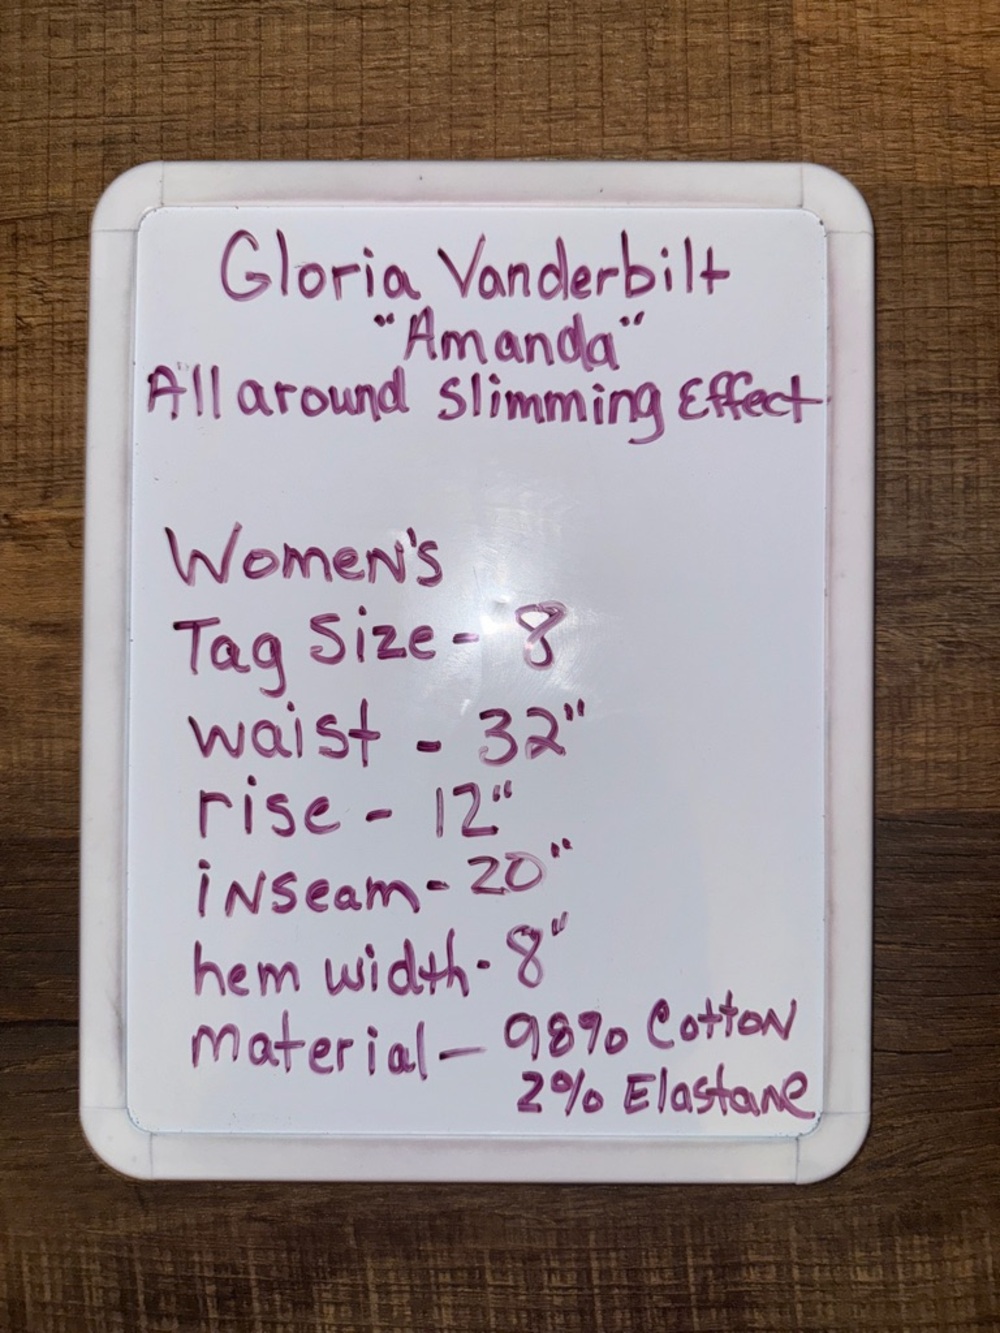 Gloria Vanderbilt
"Amanda"
All around Slimming Effect
Women's
Tag Size - 8
waist - 32"
rise - 12"
inseam - 20"
hem width - 8"
material - 98% Cotton
2% Elastane